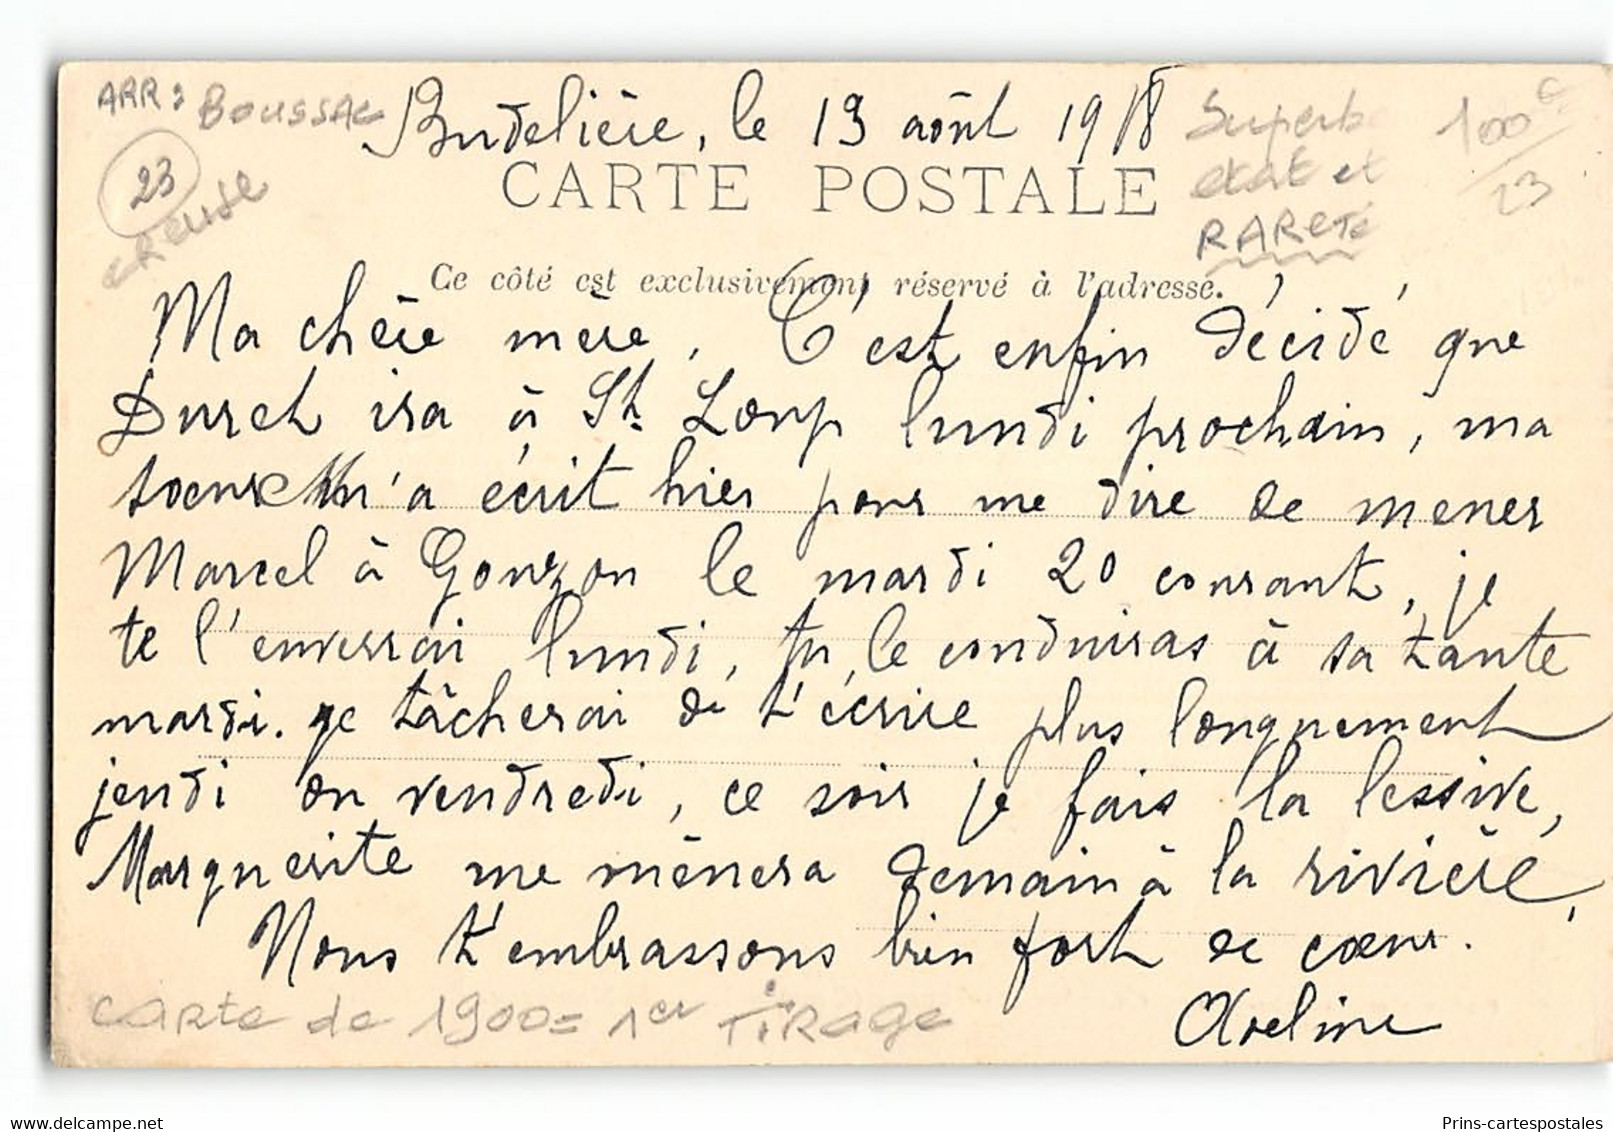 ARR: BOUSSAC
23
CREUSE
Budelière, le 13 août 1918
Superbe
état et
RARETÉ
100€
23
CARTE POSTALE
Ce côté est exclusivement réservé à l'adresse.
Ma chère mère, C'est enfin décidé que
Durch ira à St. Loup lundi prochain, ma
soeur m'a écrit hier pour me dire de mener
Marcel à Gouzon le mardi 20 courant, je
te l'enverrai lundi, tu le conduiras à sa tante
mardi. je tâcherai de t'écrire plus longuement
jeudi ou vendredi, ce soir je fais la lessive,
Marguerite me mènera demain à la rivière,
Nous t'embrassons bien fort de cœur.
Aveline
Carte de 1900 = 1er Tirage
delcampe.net
Prins-cartespostales